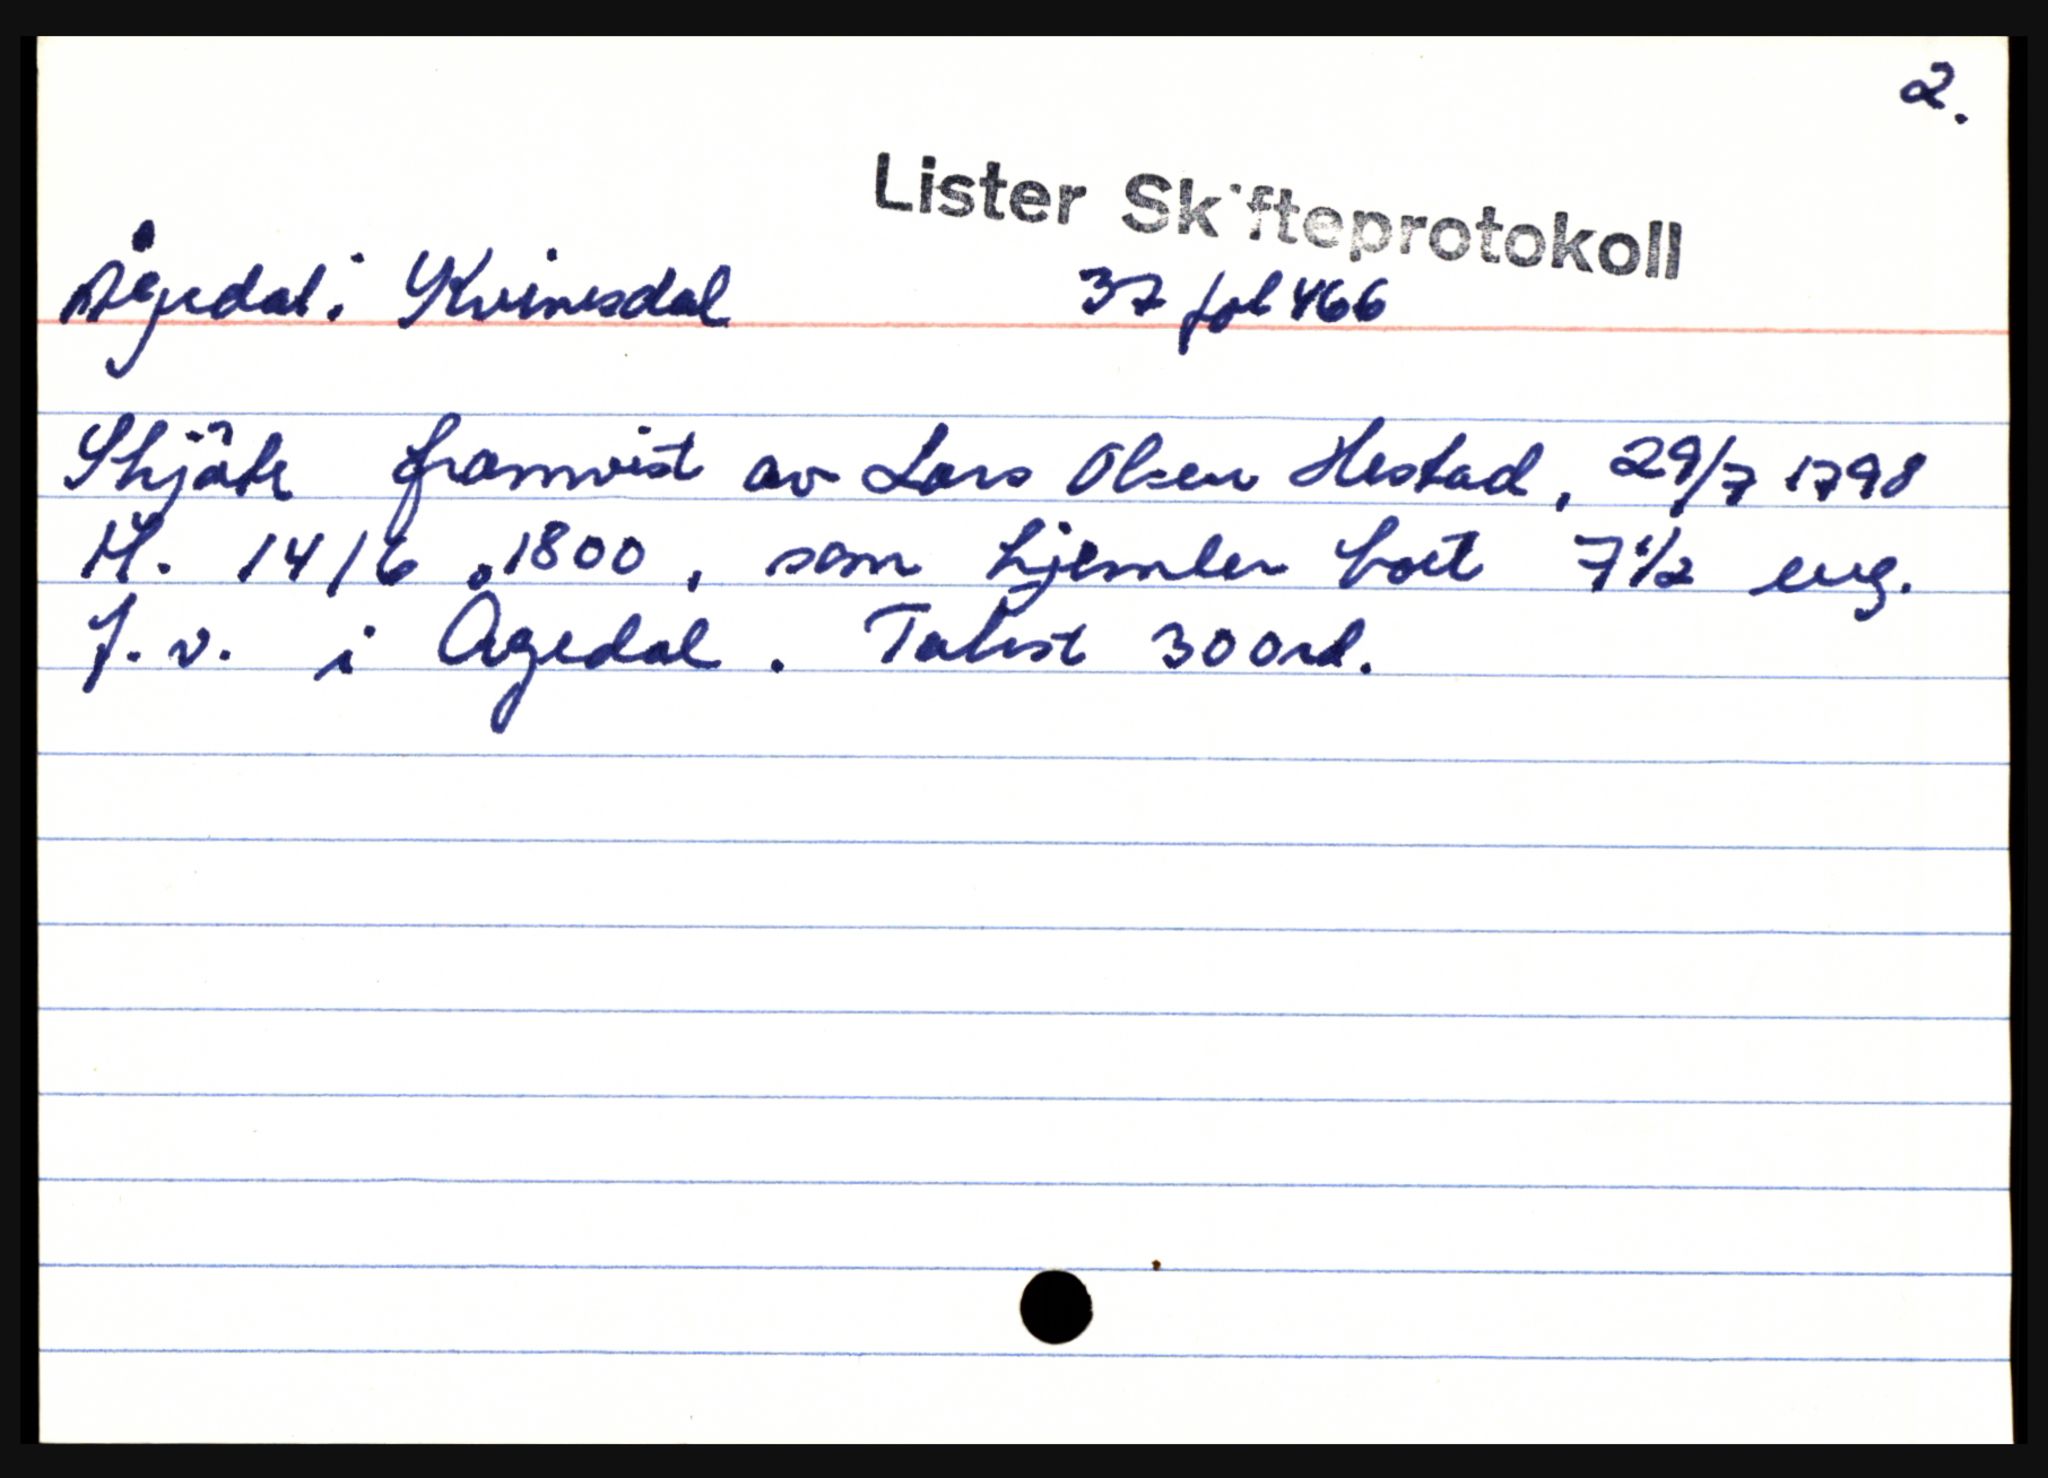 2.
Lister Skifteprotokoll
Ågedal i Kvinesdal 37 fol 466
Skjöte framvist av Lars Olsen Hestad, 29/7 1798
tl. 14/6 1800, som hjemler boet 7 1/2 eng.
j. v. i Ågedal. Takst 300 rd.